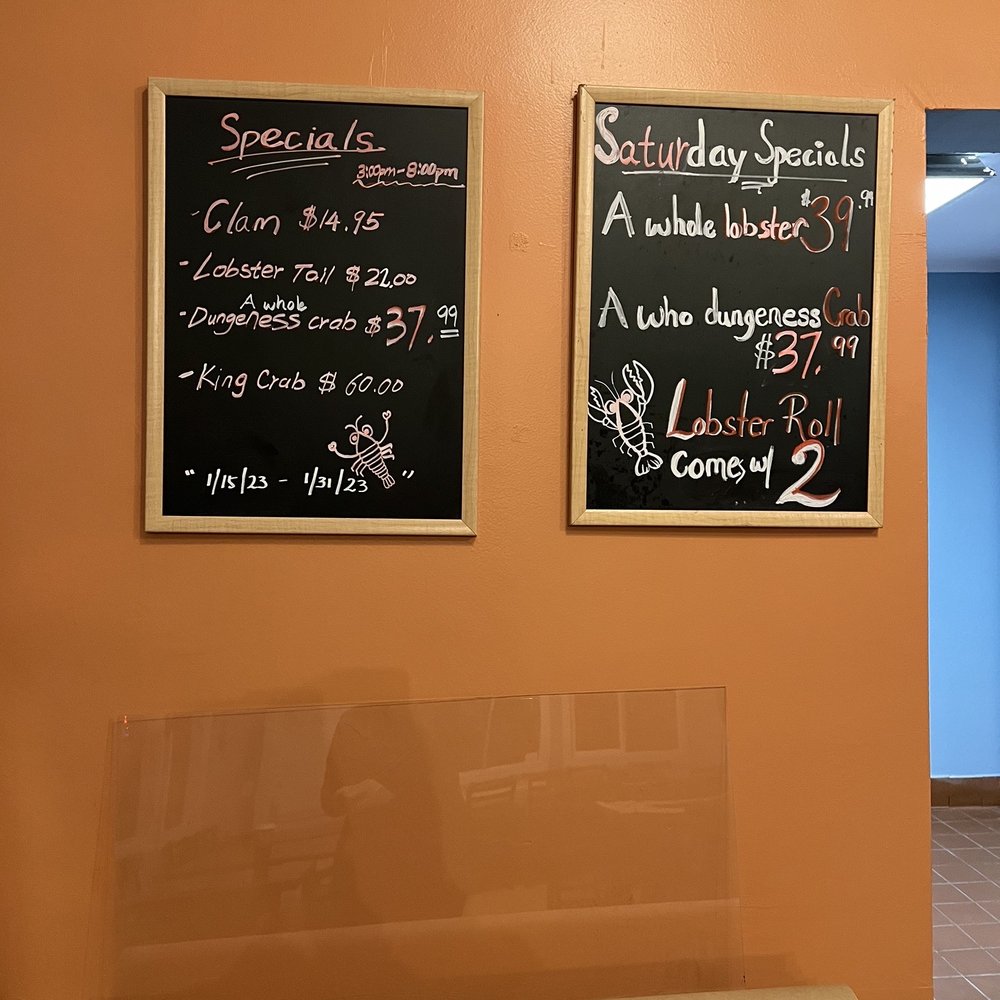 Specials
3:00pm-8:00pm
- Clam $14.95
- Lobster Tail $22.00
A whole
- Dungeness crab $37.99
- King Crab $60.00
" 1/15/23 - 1/31/23 "
Saturday Specials
A whole lobster $39.99
A who dungeness Crab
$37.99
Lobster Roll
Comes w/ 2